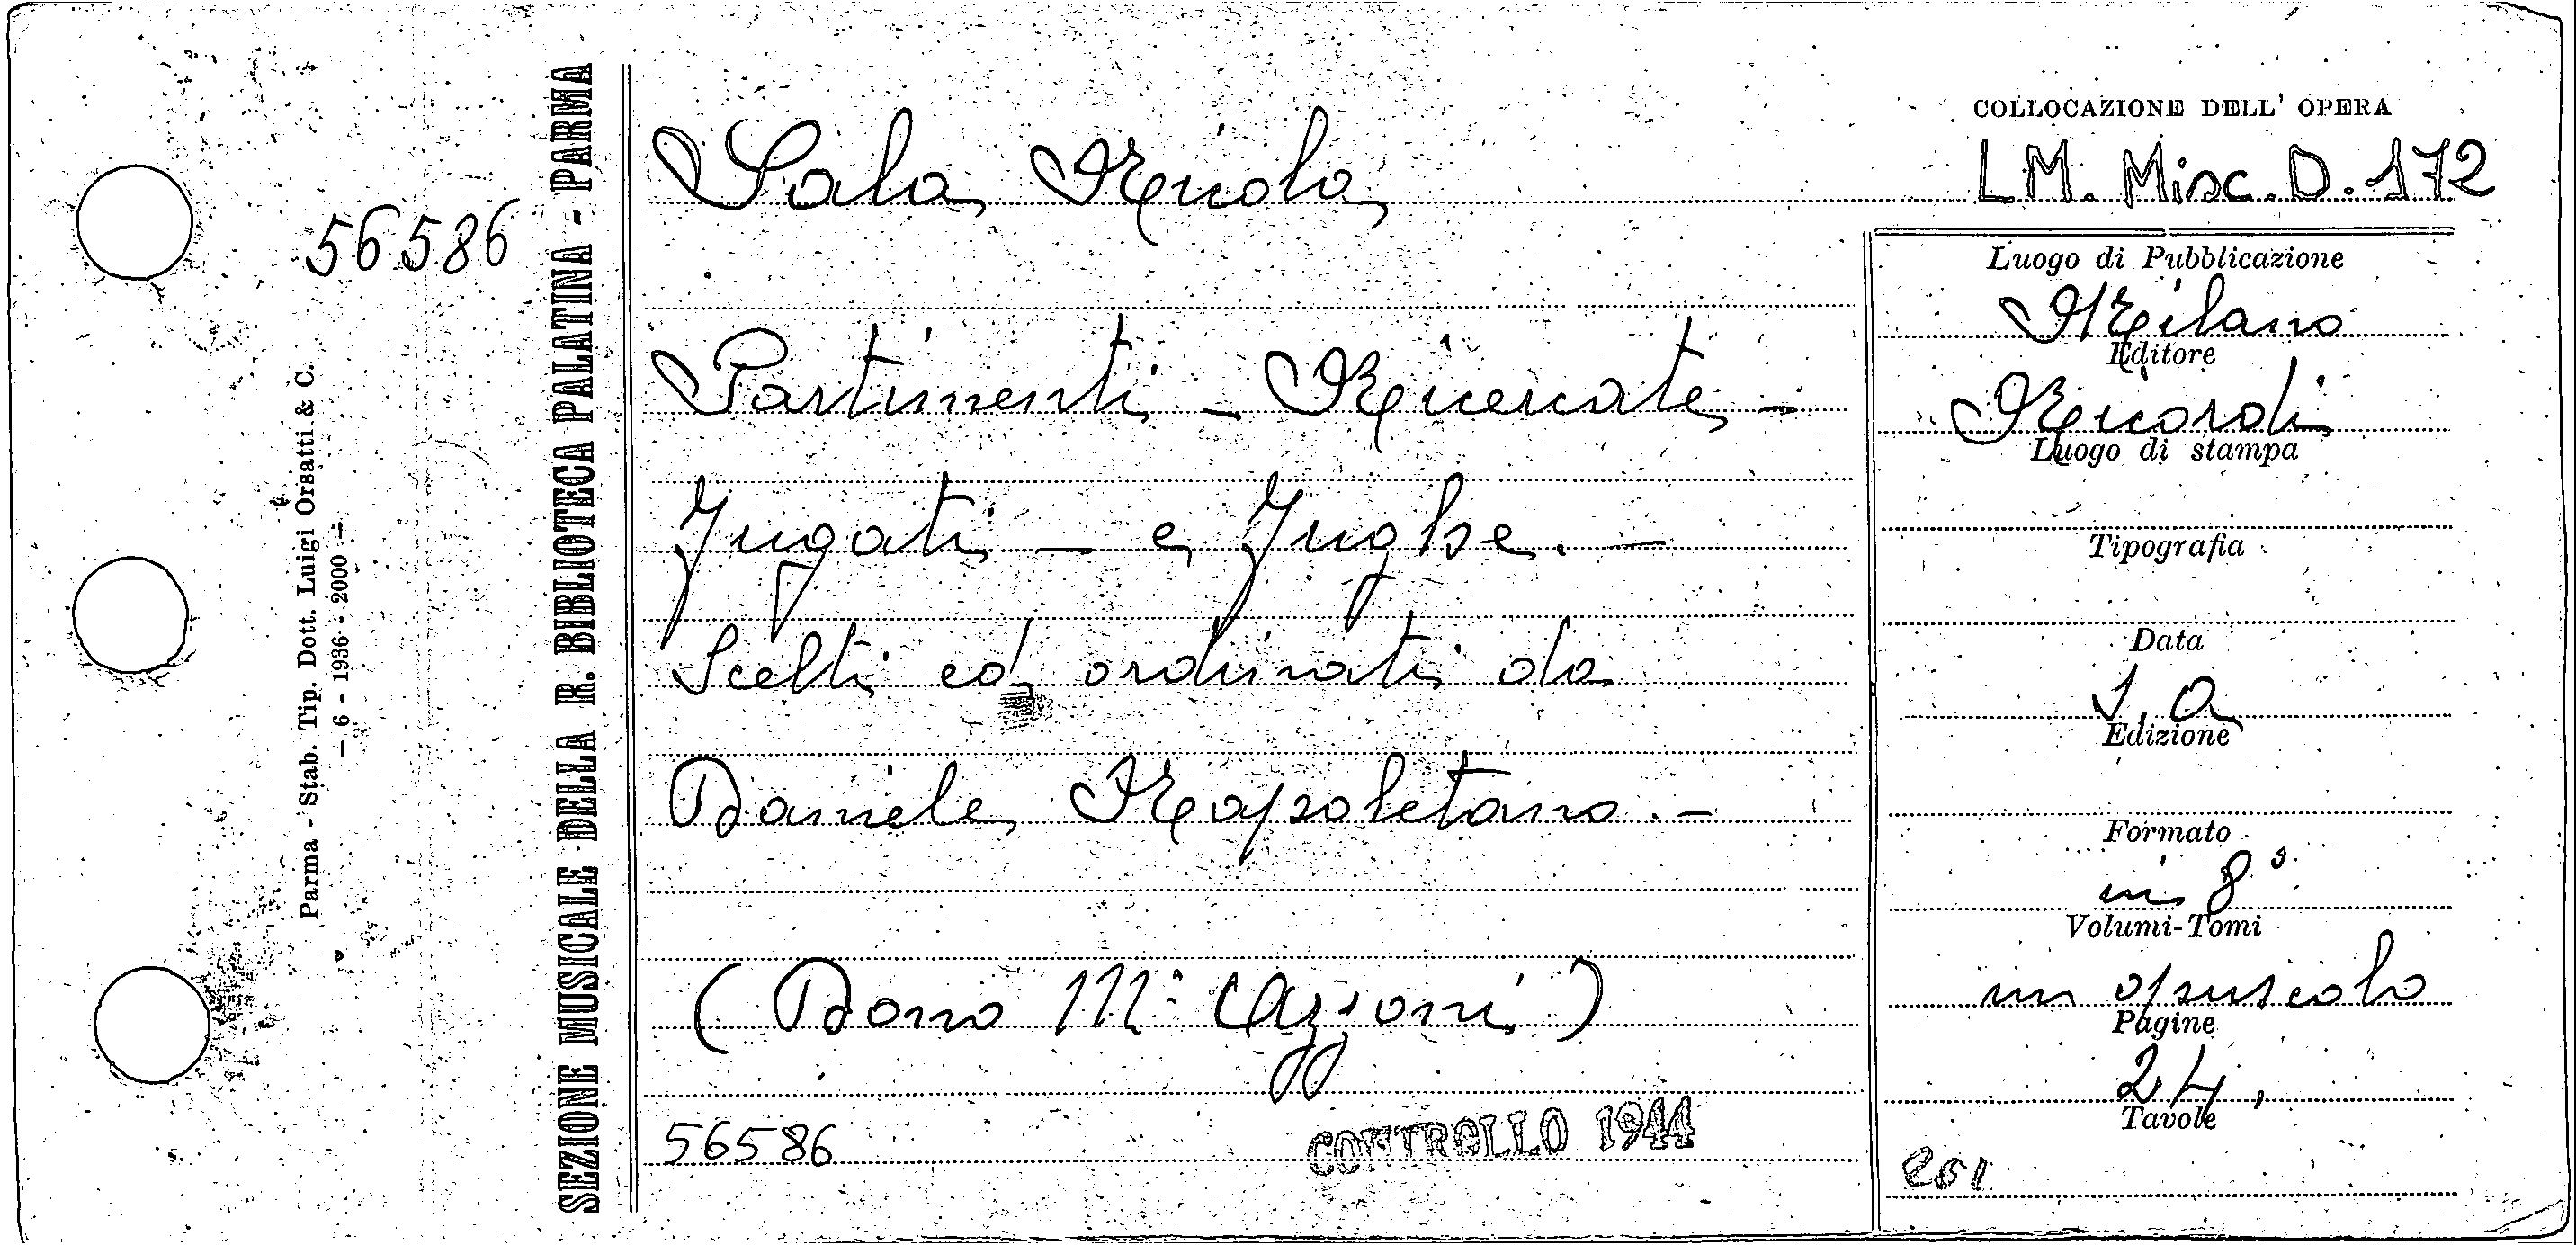 56586
Parma - Stab. Tip. Dott. Luigi Orsatti & C.
- 6 - 1936 - 2000 -
SEZIONE MUSICALE DELLA R. BIBLIOTECA PALATINA - PARMA
Sala Nicola
Partimenti - Ricercate -
Fugati - e Fughe. -
Scelti ed ordinati da
Daniele Napoletano. -
(Dono M° Azzoni)
56586
CONTROLLO 1944
COLLOCAZIONE DELL' OPERA
LM. Misc. D. 172
Luogo di Pubblicazione
Milano
Editore
Ricordi
Luogo di stampa
Tipografia
Data
s, a
Edizione
Formato
in 8°
Volumi-Tomi
un opuscolo
Pagine
24,
Tavole
251